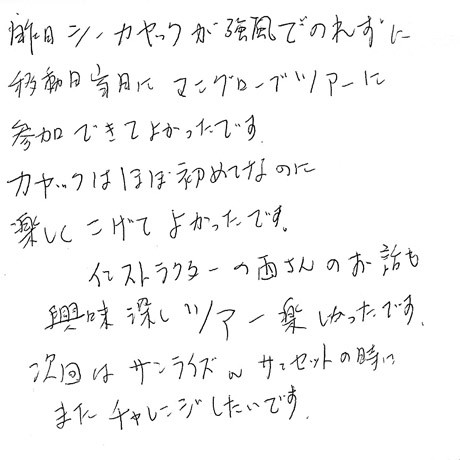 昨日シーカヤックが強風でのれずに
移動日当日に マングローブツアーに
参加できてよかったです。
カヤックはほぼ初めてなのに
楽しくこげてよかったです。
インストラクターの西さんのお話も
興味深しツアー楽しかったです。
次回はサンライズ サンセットの時に
またチャレンジしたいです。